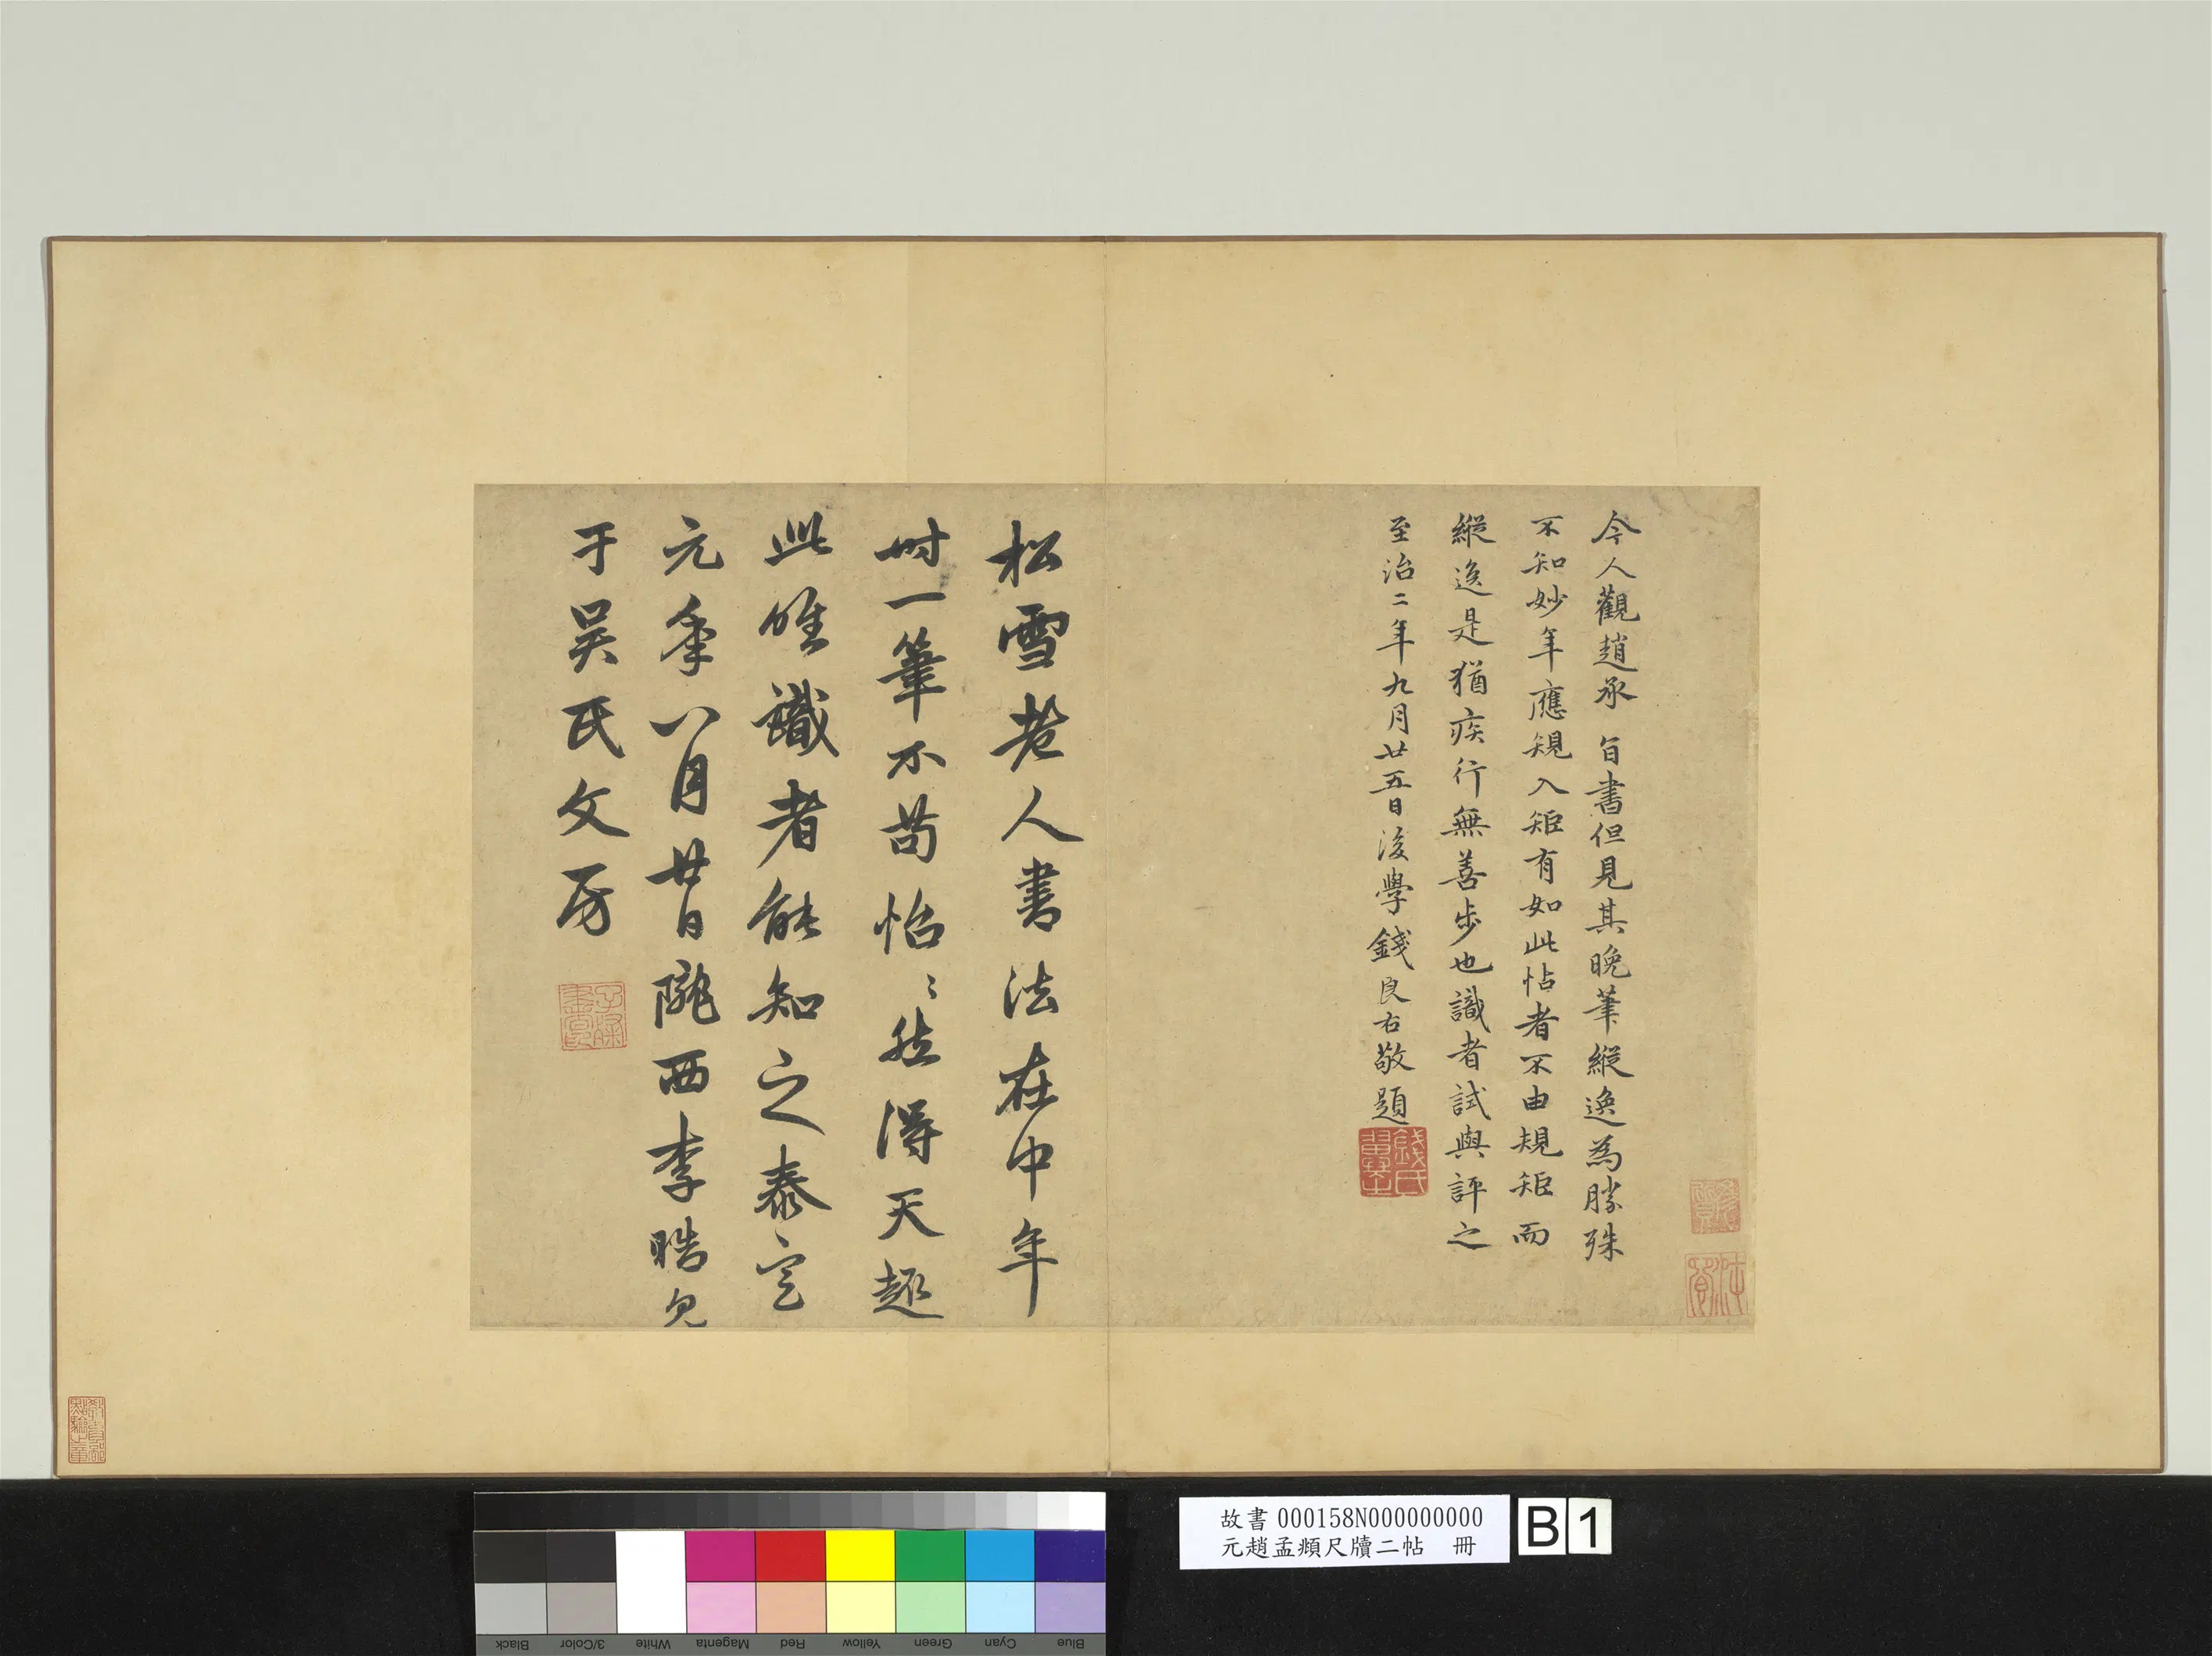 今人觀趙承旨書但見其晚筆縱逸為勝殊
不知妙年應規入矩有如此帖者不由規矩而
縱逸是猶疾行無善步也識者試與評之
至治二年九月廿五日後學錢良右敬題
錢氏翼之
松雪老人書法在中年
时一筆不苟怡〻然得天趣
此唯識者能知之泰定
元年八月廿日隴西李晧見
于吳氏文房
故書 000158N000000000
元趙孟頫尺牘二帖 冊
B 1
Black
3/Color
White
Magenta
Red
Yellow
Green
Cyan
Blue